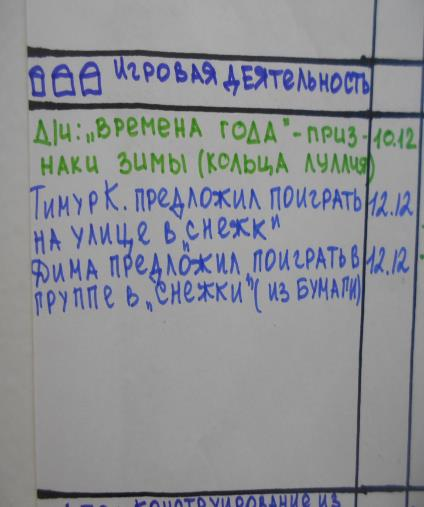 ИГРОВАЯ ДЕЯТЕЛЬНОСТЬ
Д/и: „ВРЕМЕНА ГОДА" - ПРИЗ- 10.12
НАКИ ЗИМЫ (КОЛЬЦА ЛУЛЛИЯ)
ТИМУР К. ПРЕДЛОЖИЛ ПОИГРАТЬ 12.12
НА УЛИЦЕ В „СНЕЖК"
ДИМА ПРЕДЛОЖИЛ ПОИГРАТЬ В 12.12
ГРУППЕ В „СНЕЖКИ" (ИЗ БУМАГИ)
КОНСТРУИРОВАНИЕ ИЗ